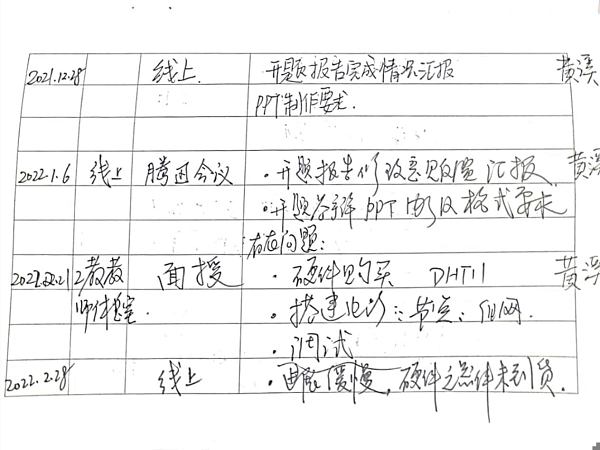 2021.12.28 线上 开题报告完成情况汇报 黄溪
PPT制作要求.
2022.1.6 线上 腾迅会议 ·开题报告修改意见 汇报 黄溪
·开题答辩PPT 格式要求
存在问题:
2教教 面授 ·硬件购买 DHT11 黄溪
师休息室. ·搭建 节点、组网.
·调试
2022.2.28 线上 ·进展缓慢,硬件元器件未到货.